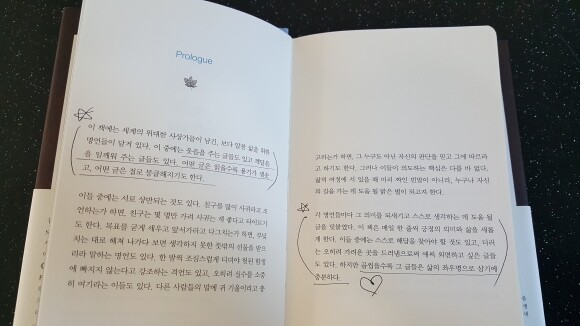 Prologue
이 책에는 세계의 위대한 사상가들이 남긴, 보다 알찬 삶을 위한
명언들이 담겨 있다. 이 중에는 웃음을 주는 글들도 있고 깨달음
을 일깨워 주는 글들도 있다. 어떤 글은 읽을수록 용기가 샘솟
고, 어떤 글은 절로 뭉클해지기도 한다.
이들 중에는 서로 상반되는 것도 있다. 친구를 많이 사귀라고 조
언하는가 하면, 친구는 몇 명만 가려 사귀는 게 좋다고 타이르기
도 한다. 목표를 굳게 세우고 앞서가라고 다그치는가 하면, 무덤
차는 대로 헤쳐 나가다 보면 생각하지 못한 뜻밖의 선물을 받으
리라 말하는 명언도 있다. 한 발짝 조심스럽게 디뎌야 험한 함정
에 빠지지 않는다고 강조하는 격언도 있고, 오히려 실수를 소중
히 여기라는 이들도 있다. 다른 사람들의 말에 귀 기울이라고 충
고하는가 하면, 그 누구도 아닌 자신의 판단을 믿고 그에 따르라
고 하기도 한다. 그러나 이들이 의도하는 핵심은 다를 바 없다.
삶의 여정에 서 있을 때 이리 써인 법열이 아니라, 누구나 자신
의 길을 가는 데 도움 될 밝은 별이 되고자 한다.
각 명언들마다 그 의미를 되새기고 스스로 생각하는 게 도움 될
글을 덧붙였다. 이 책은 매일 한 줄의 긍정의 의미와 삶을 새롭
게 한다. 이들 중에는 스스로 해답을 찾아야 할 것도 있고, 더러
는 오히려 가려운 곳을 드러냄으로써 애써 외면하고 싶은 글들
도 있다. 하지만 곱씹을수록 그 글들은 삶의 좌우명으로 삼기에
충분하다.